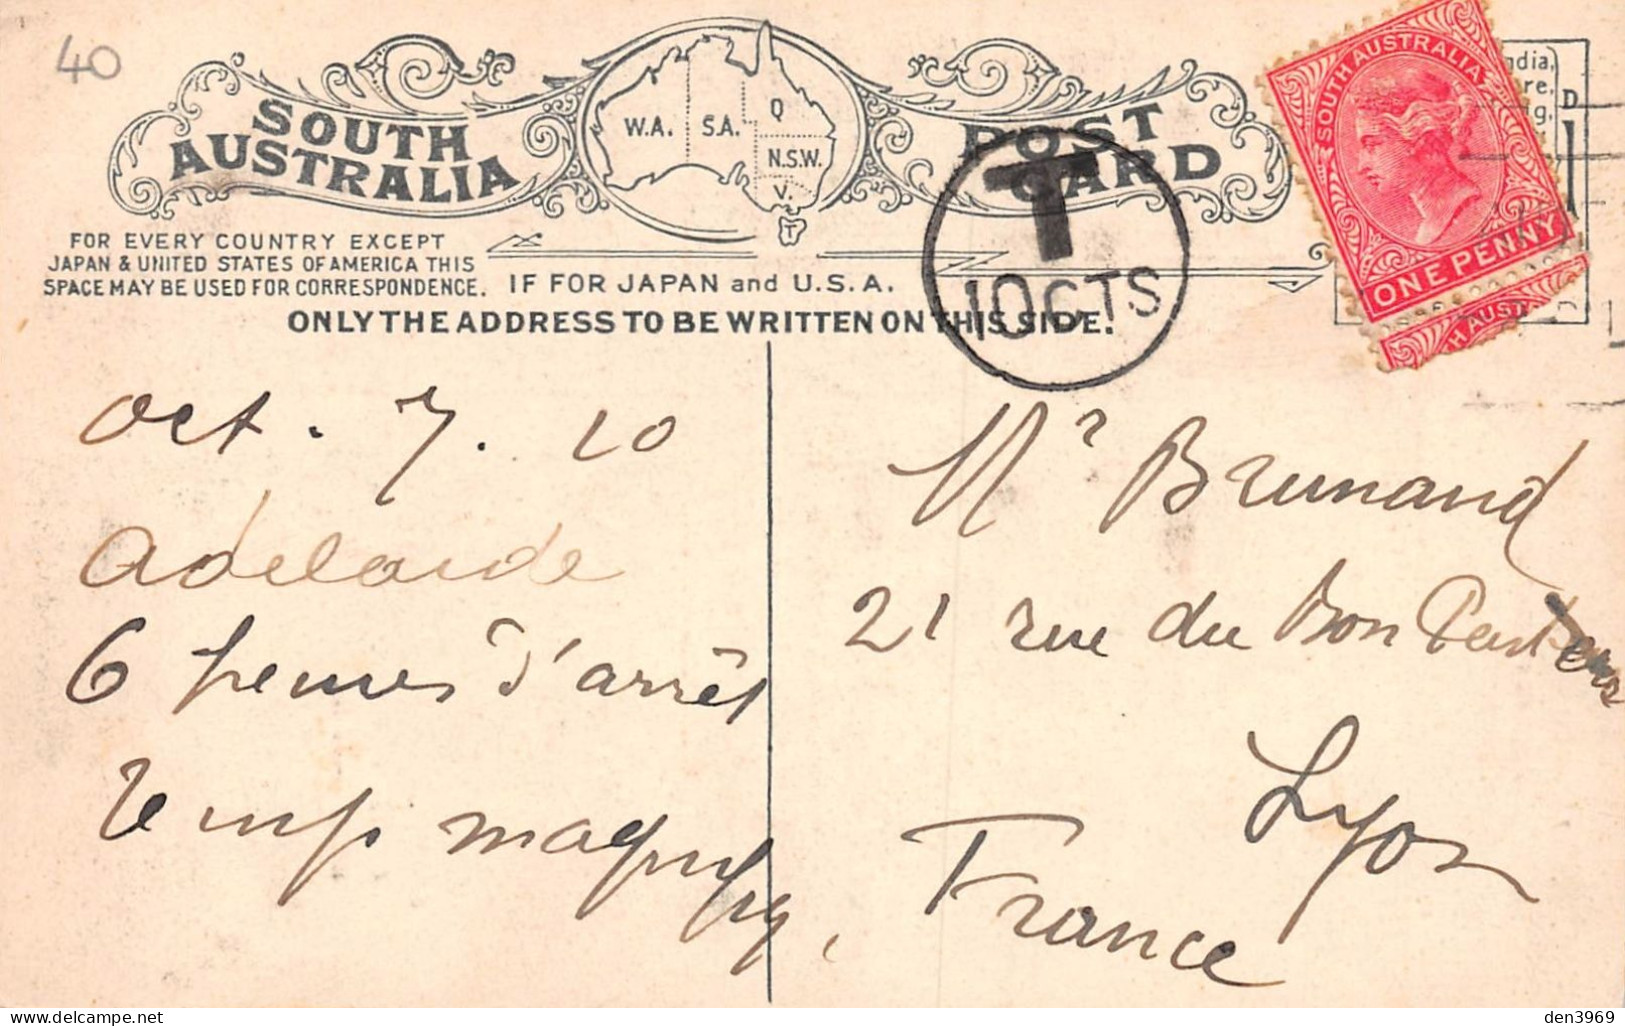 40
SOUTH AUSTRALIA
W.A. S.A. Q N.S.W. V. T
POST CARD
SOUTH AUSTRALIA
ONE PENNY
H AUST
ndia,
re,
g,
D
FOR EVERY COUNTRY EXCEPT
JAPAN & UNITED STATES OF AMERICA THIS
SPACE MAY BE USED FOR CORRESPONDENCE.
IF FOR JAPAN and U.S.A.
ONLY THE ADDRESS TO BE WRITTEN ON THIS SIDE.
T
10CTS
Oct. 7. 10
Adelaide
6 heures d'arrêt
Temps
Mr Brunand
21 rue du Bon Pasteur
Lyon
France
den3969